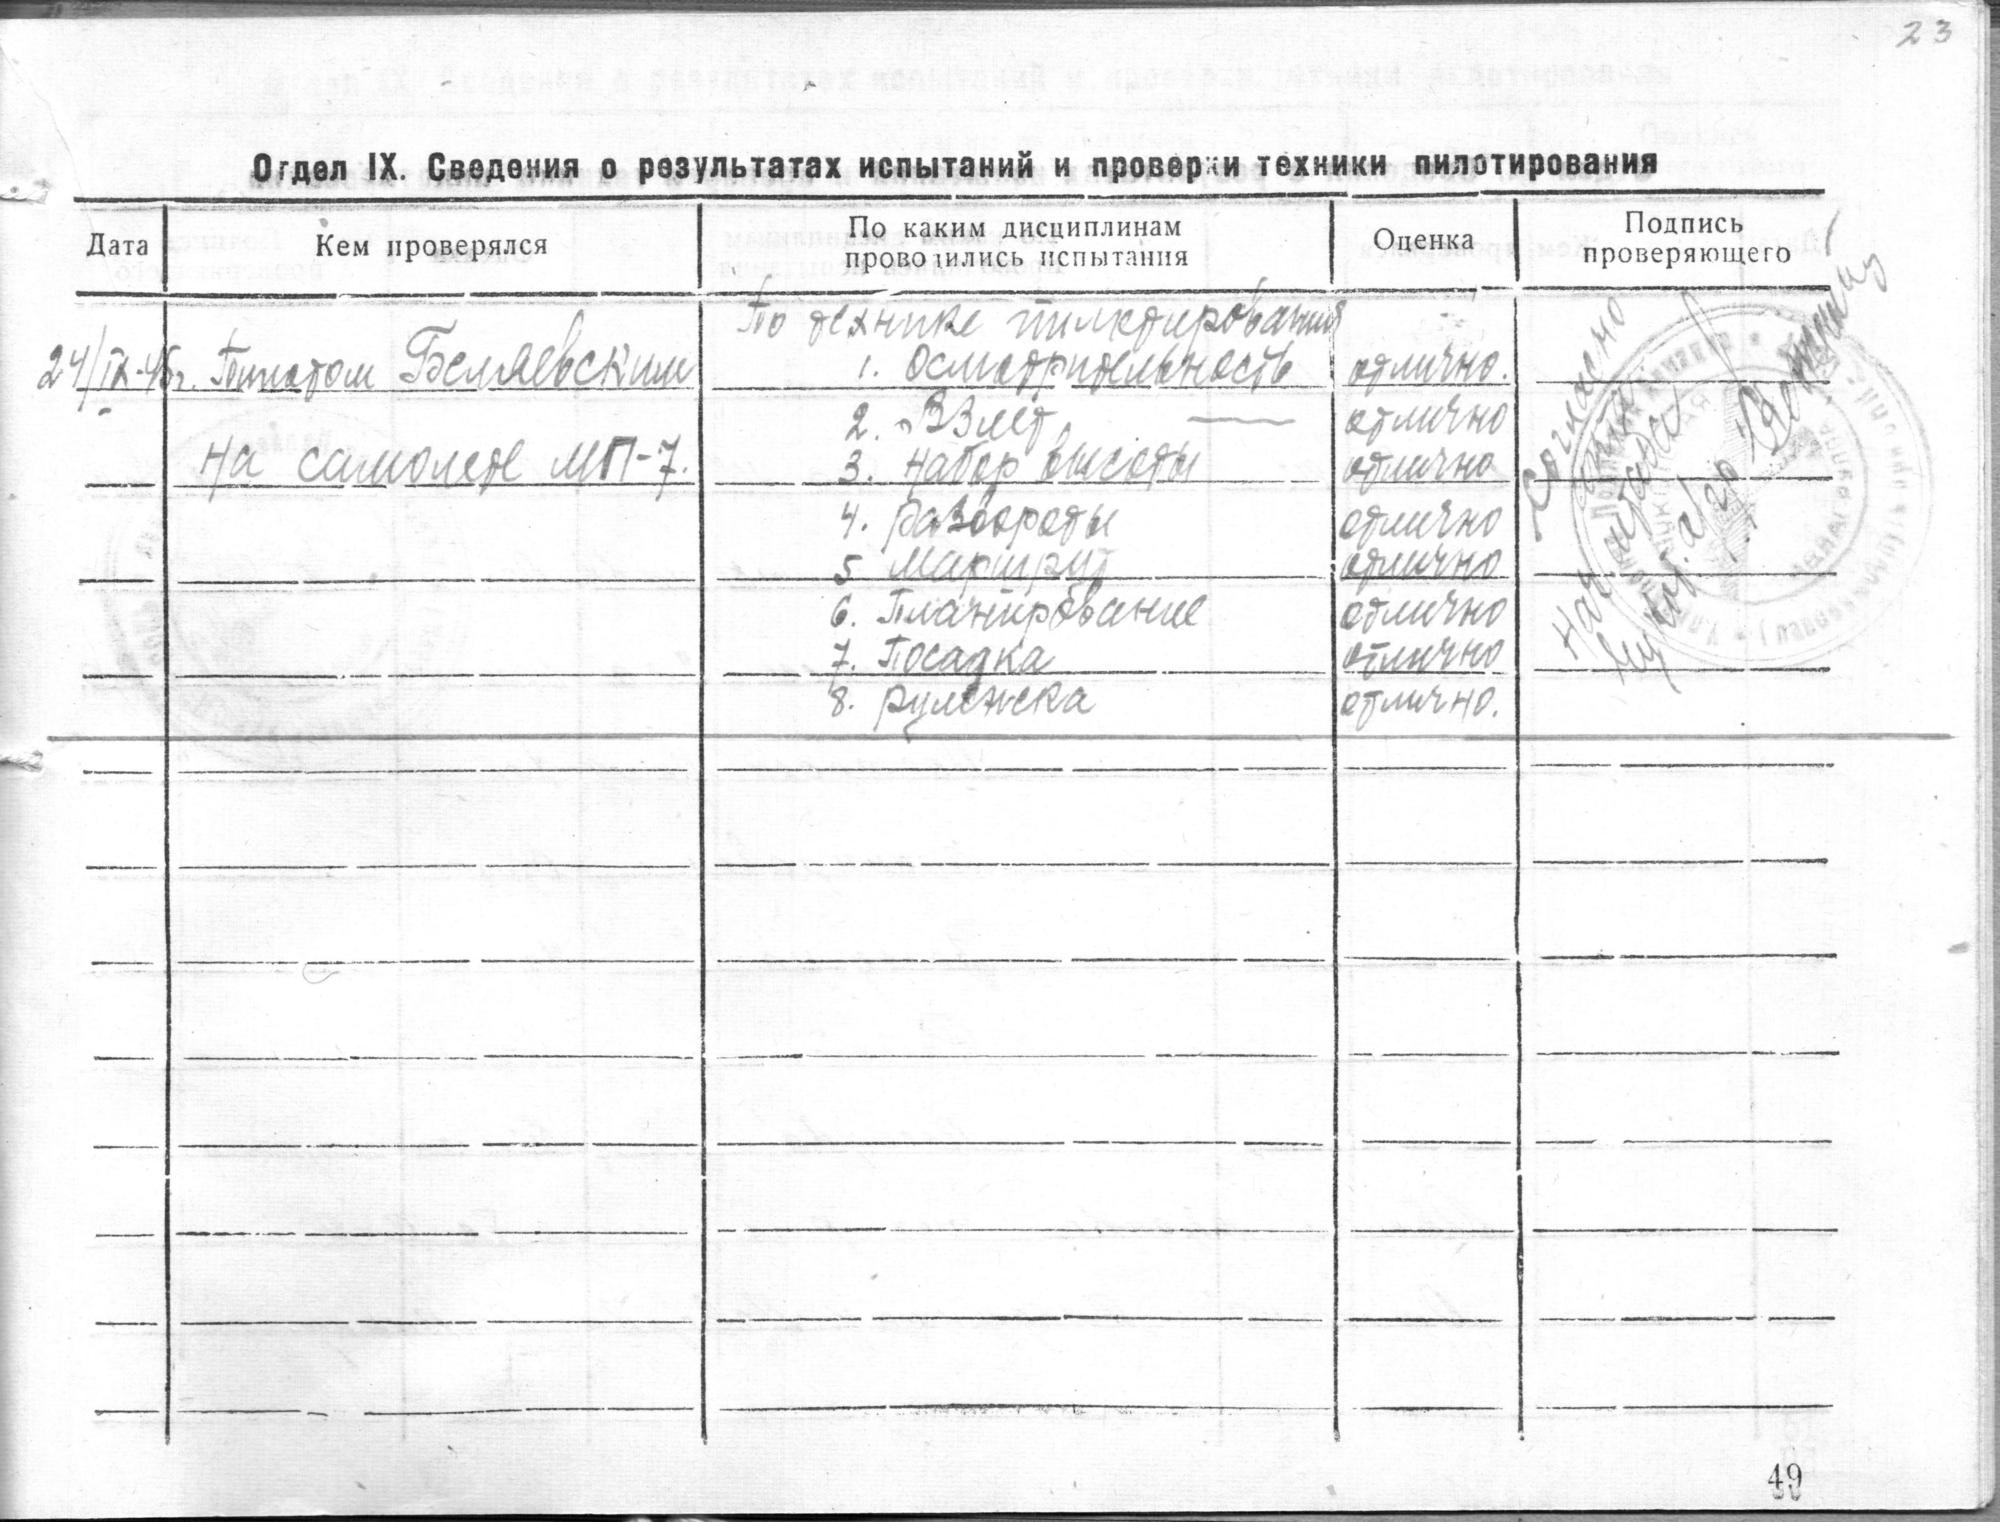 23
Отдел IX. Сведения о результатах испытаний и проверки техники пилотирования
Дата
Кем проверялся
По каким дисциплинам
проводились испытания
Оценка
Подпись
проверяющего
По технике пилотирования
24/IX-45г. Пилотом Беляевским 1. Осмотрительность отлично.
2. Взлет отлично
на самолете МП-7. 3. Набор высоты отлично
4. Развороты отлично
5 Маршрут отлично
6. Планирование отлично
7. Посадка отлично
8. Рулежка отлично.
Согласено
Нач штаба
49